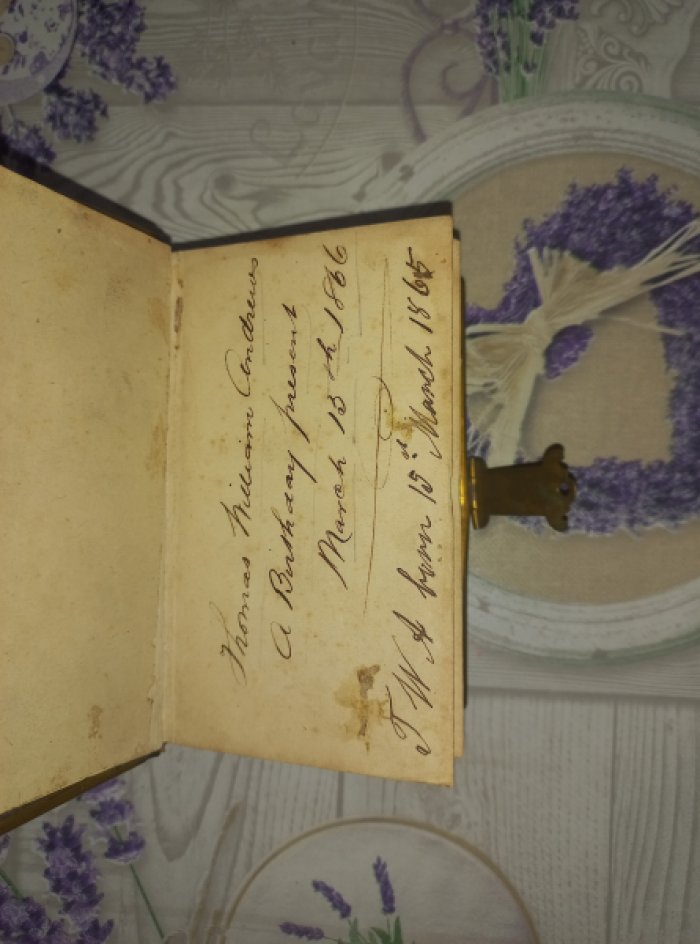 Thomas William Andrews
A Birthday present
March 15th 1866
T W A born 15th March 1865